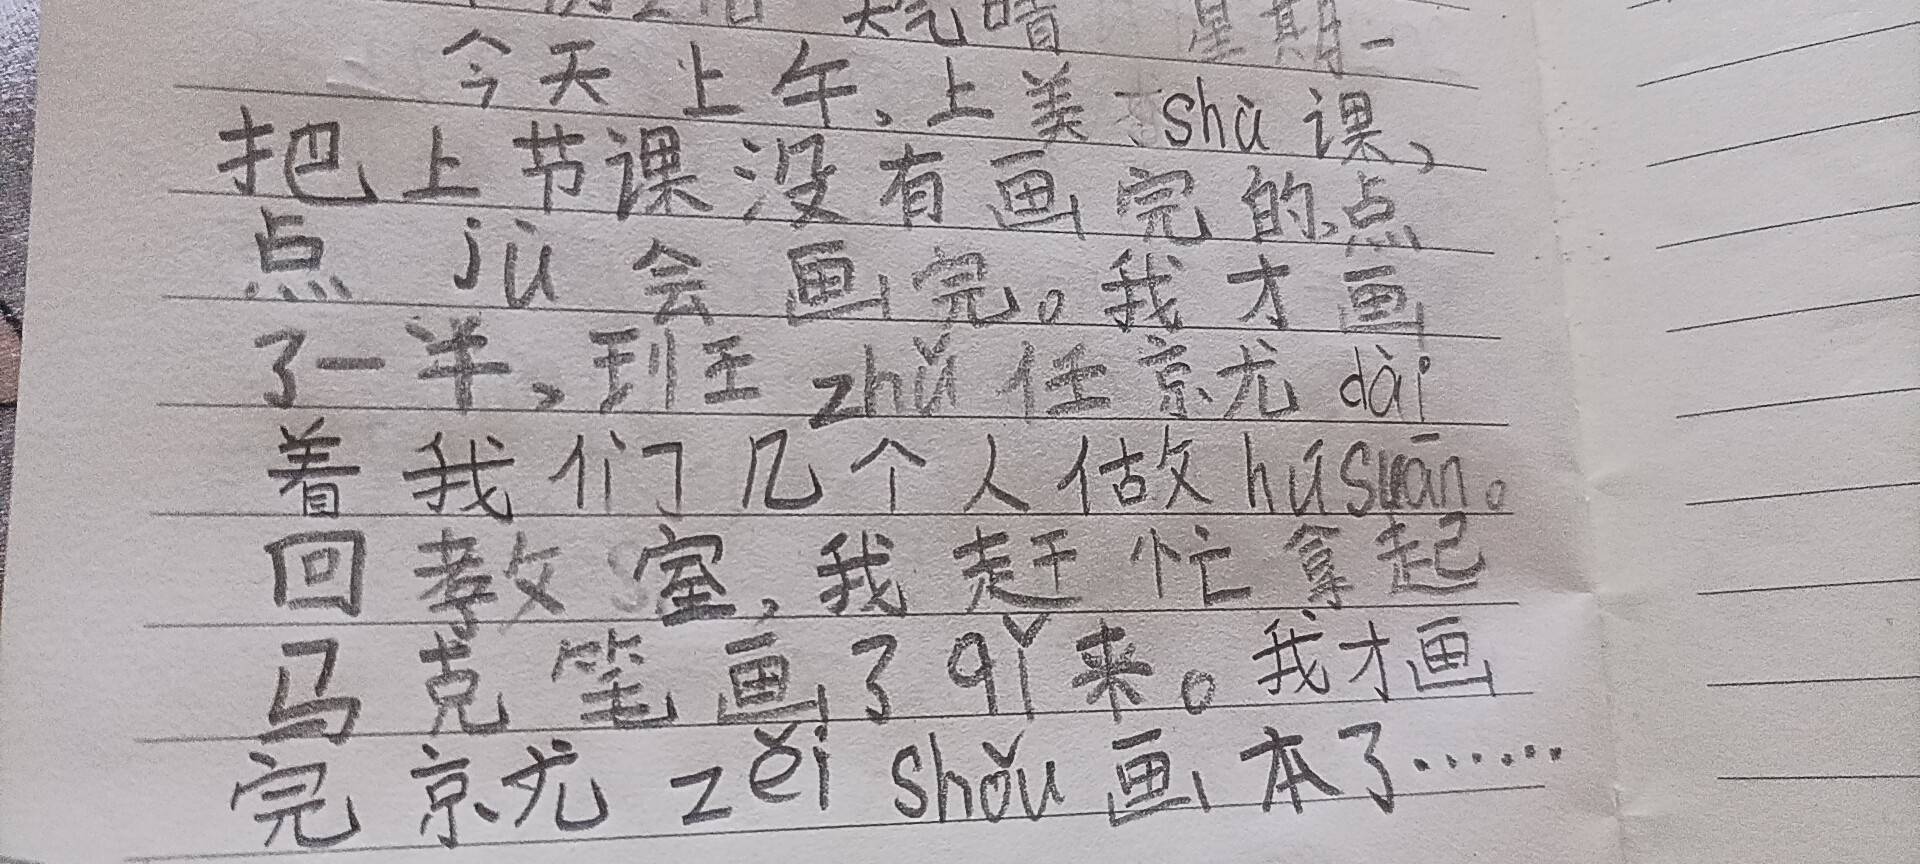 天气晴 星期一
今天上午、上美shù课，
把上节课没有画完的点
点jù会画完。我才画
了一半、班主zhǔ任就dài
着我们几个人做húsuān。
回教室，我赶忙拿起
马克笔画了qǐ来。我才画
完就zěi shǒu画本了……